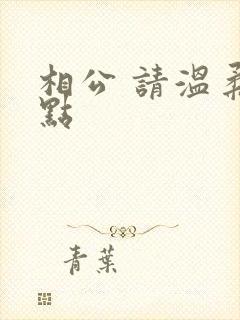 相公 請溫柔
點
青葉